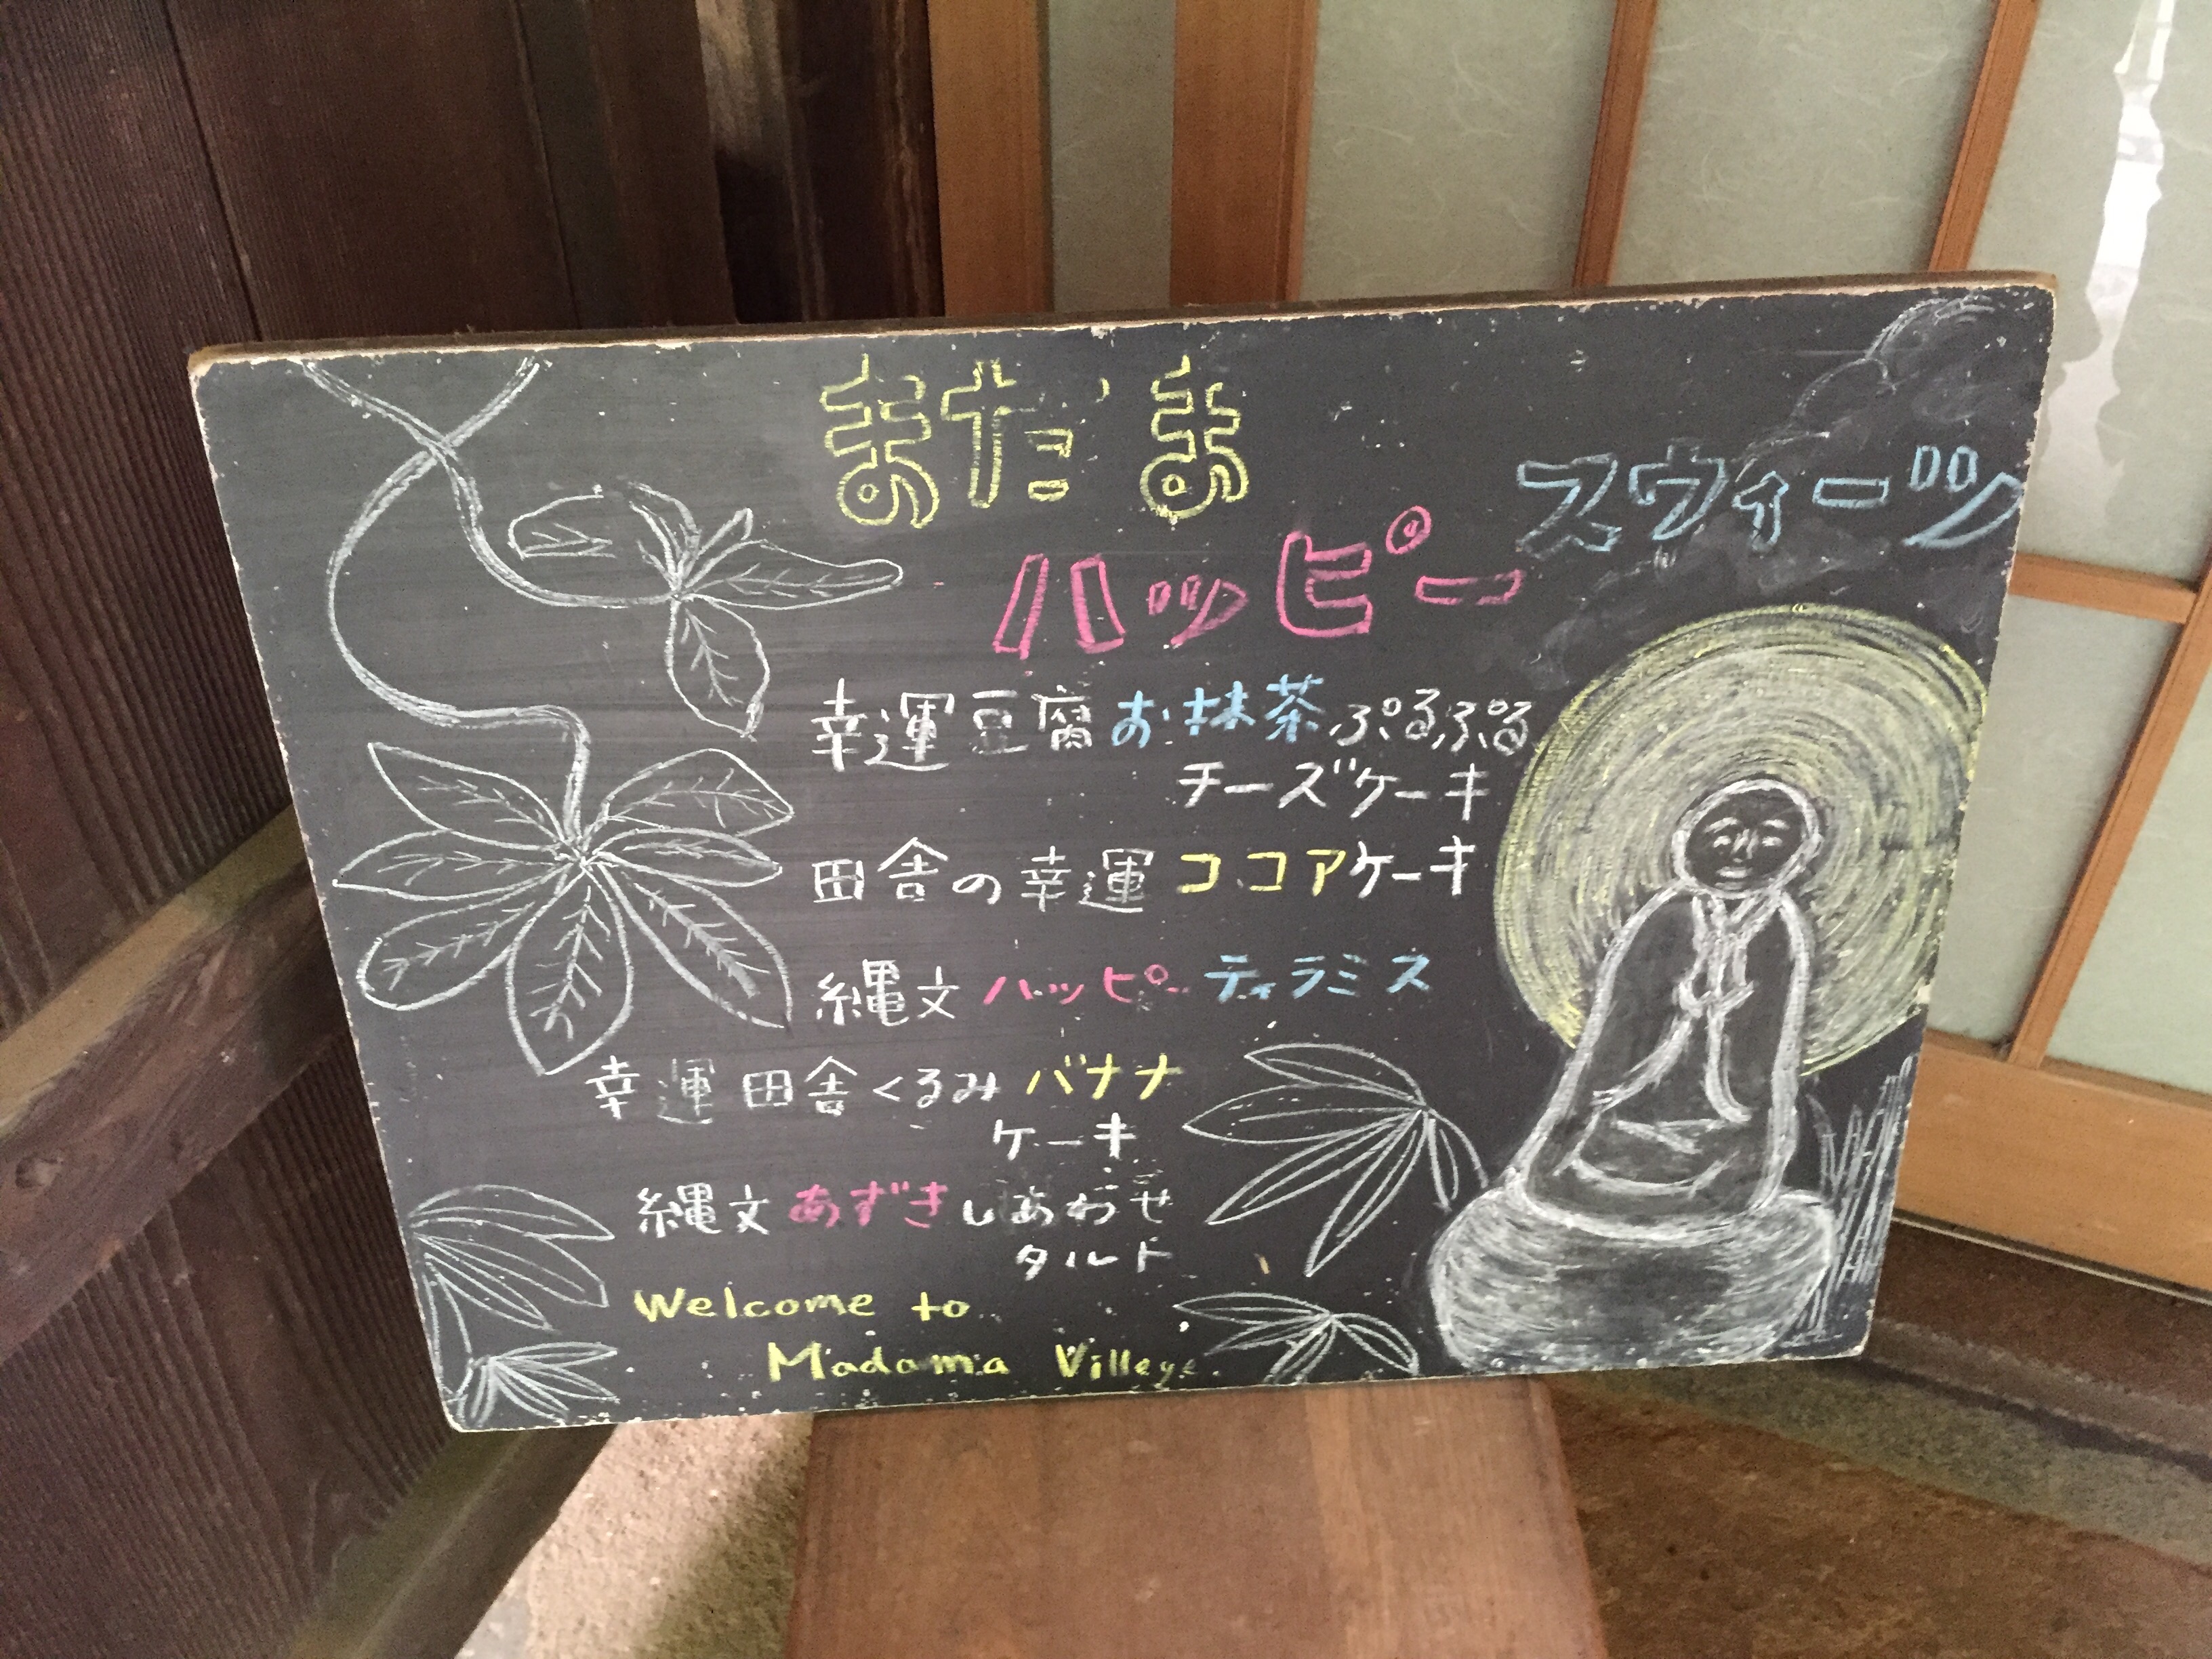 まだま
ハッピー スウィーツ
幸運豆腐お抹茶ぷるぷる
チーズケーキ
田舎の幸運ココアケーキ
縄文ハッピーティラミス
幸運田舎くるみバナナ
ケーキ
縄文あずきしあわせ
タルト
Welcome to
Madama Villege